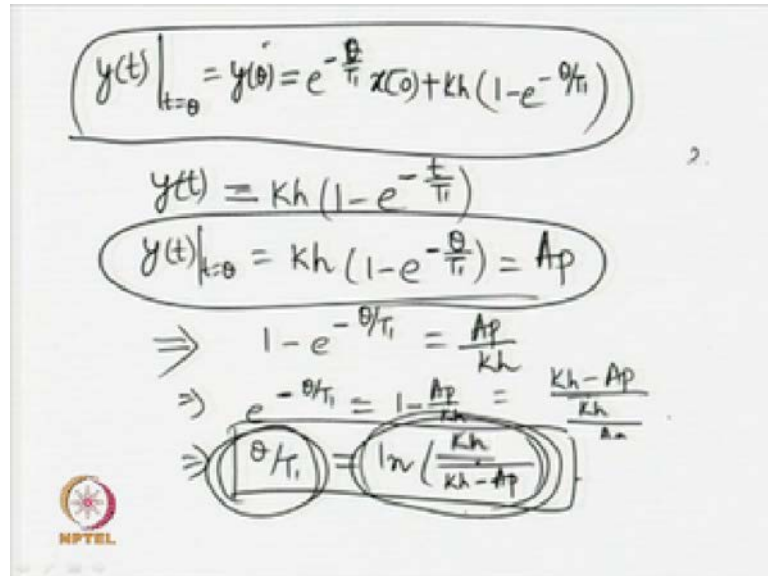 y(t)|t=θ = y(θ) = e^-θ/T₁ x(0) + Kh (1 - e^-θ/T₁)
2.
y(t) = Kh (1 - e^-t/T₁)
y(t)|t=θ = Kh (1 - e^-θ/T₁) = Ap
⇒ 1 - e^-θ/T₁ = Ap/Kh
⇒ e^-θ/T₁ = 1 - Ap/Kh = Kh - Ap/Kh
⇒ θ/T₁ = ln (Kh/Kh - Ap)
NPTEL